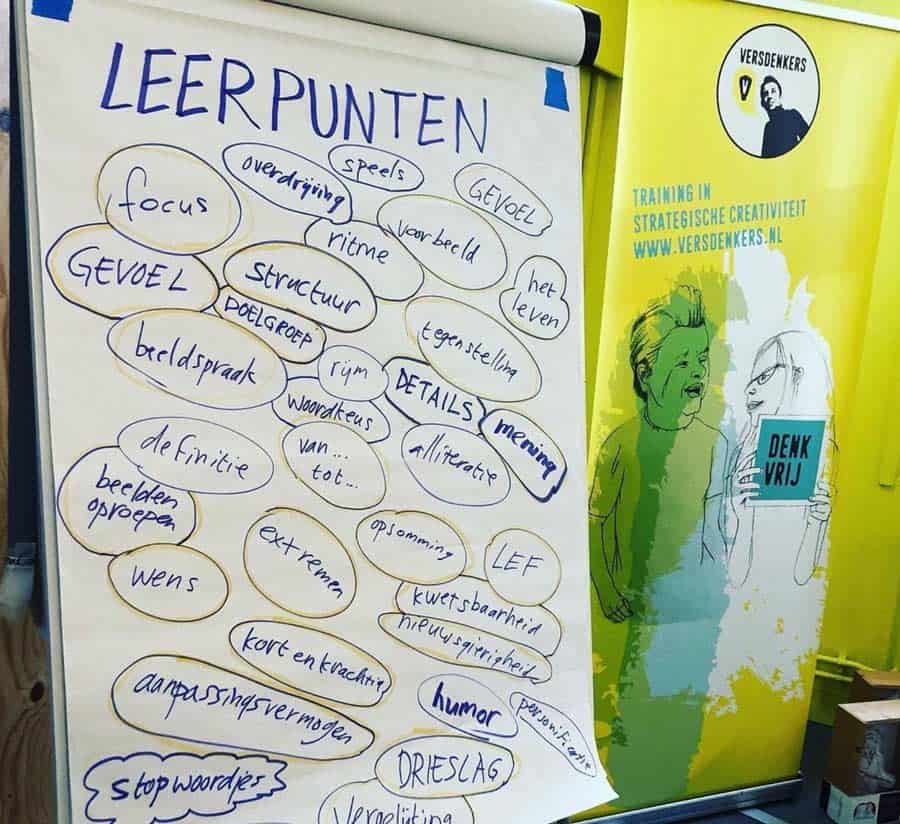 LEERPUNTEN
focus
overdrijving
speels
GEVOEL
voorbeeld
ritme
GEVOEL
structuur
het
leven
DOELGROEP
tegenstelling
beeldspraak
rijm
DETAILS
woordkeus
mening
definitie
van...
tot...
alliteratie
beelden
oproepen
extremen
opsomming
LEF
wens
kwetsbaarheid
nieuwsgierigheid
kort en krachtig
aanpassingsvermogen
humor
personificatie
DRIESLAG
stopwoordjes
Vergelijking
VERSDENKERS
V
TRAINING IN
STRATEGISCHE CREATIVITEIT
WWW.VERSDENKERS.NL
DENK
VRIJ